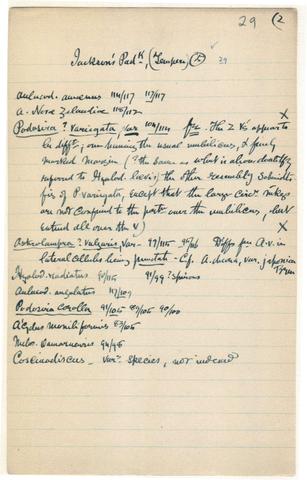 29 (2
Jackson's Padk, (Tempere) (2) 29
Aulacod. amoenus 114/117 117/117
A. Nova Zelandiae 115/112
X
Podosira ? variegata, var 108/114 The 2 Vs appear to
be difft, one having the usual umbilicus, & finely
marked margin (? the same as what is above doubtfully
referred to Hyalod. laevis) the other resembly Schmidt's
fig of P. variegata, except that the large circr
are not confined to the part over the umbilicus, but
extend all over the V)
X
Asterolampra ? vulgaris, var - 97/115 Diffs fr A.v. in
lateral cellules being punctate - Cf. A. decora, var. japonica
Hyalod. radiatus 90/115 91/99 ? spinous
Aulacod. angulatus 117/109
Podosira corolla 91/105 90/105 90/100
Actyclus moniliformis 87/105
Melos.
Coscinodiscus - vars species, not indexed